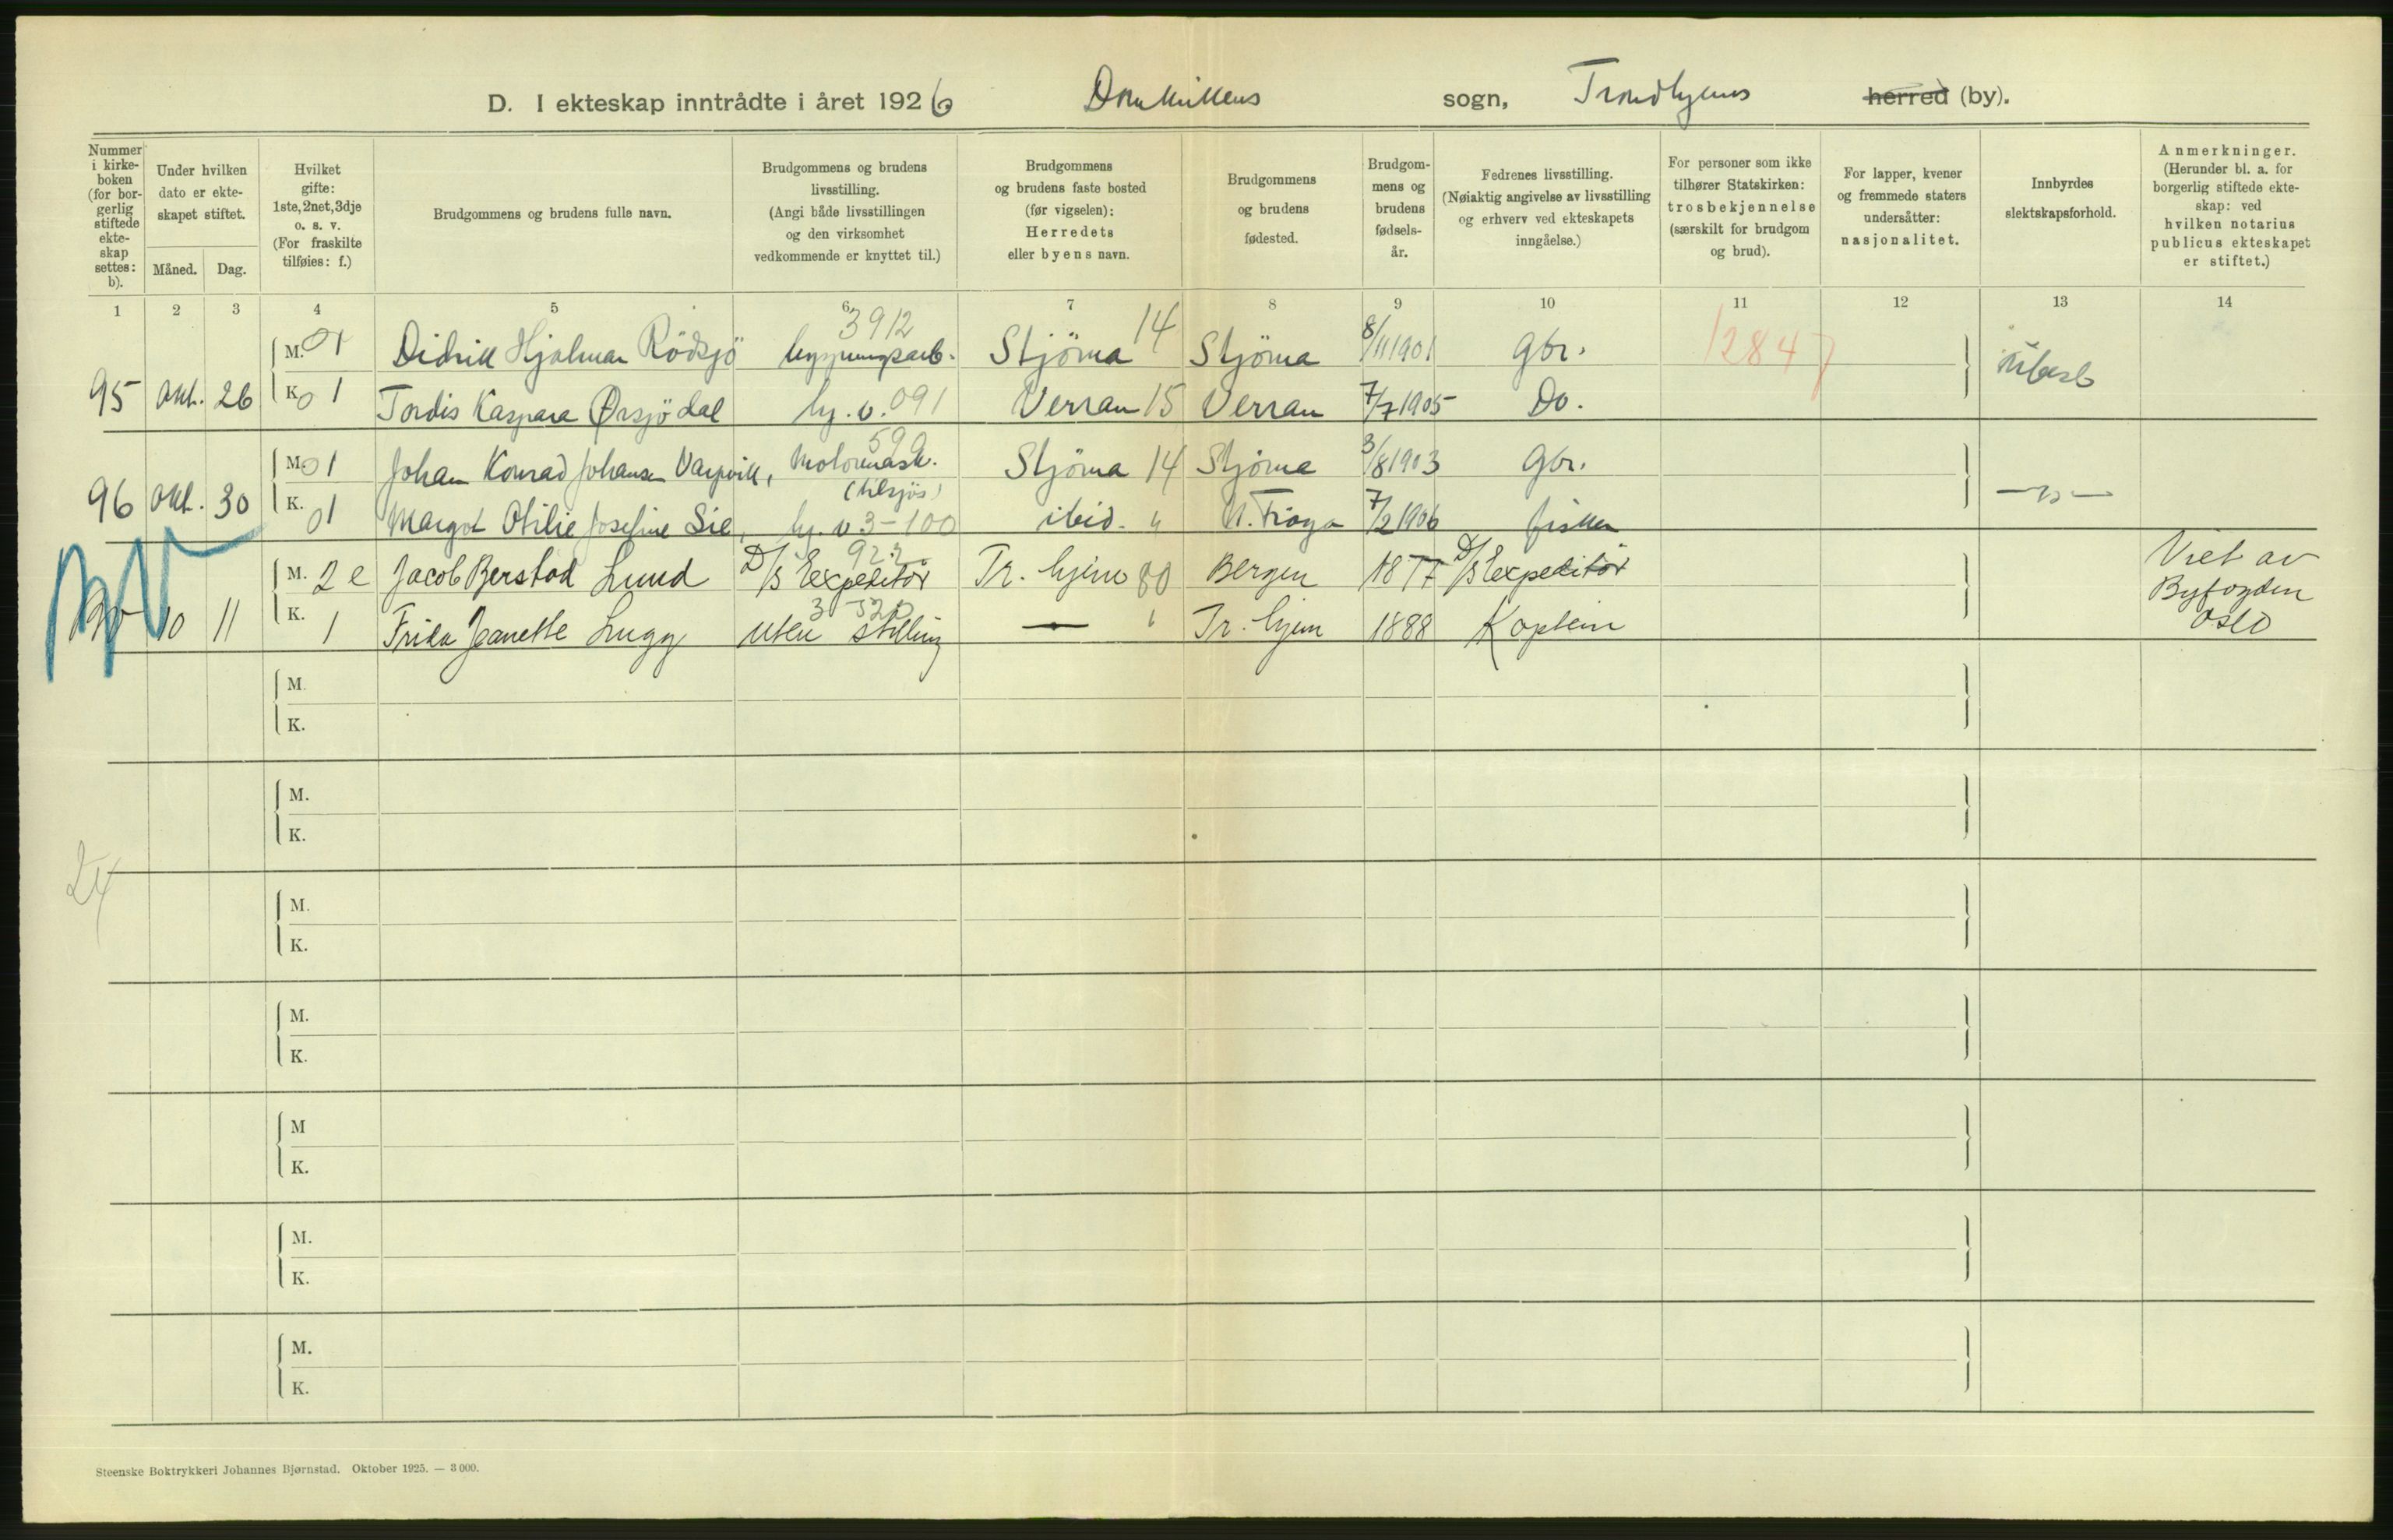 D. I ekteskap inntrådte i året 1926 Domkirkens sogn, Trondhjems herred (by).
Nummer i kirke-boken (for bor-gerlig stiftede ekte-skap settes: b).
Under hvilken dato er ekte-skapet stiftet.
Måned. Dag.
Hvilket gifte: 1ste, 2net, 3dje o. s. v. (For fraskilte tilføies: f.)
Brudgommens og brudens fulle navn.
Brudgommens og brudens livsstilling. (Angi både livsstillingen og den virksomhet vedkommende er knyttet til.)
Brudgommens og brudens faste bosted (før vigselen): Herredets eller byens navn.
Brudgommens og brudens fødested.
Brudgom-mens og brudens fødsels-år.
Fedrenes livsstilling. (Nøiaktig angivelse av livsstilling og erhverv ved ekteskapets inngåelse.)
For personer som ikke tilhører Statskirken: trosbekjennelse (særskilt for brudgom og brud).
For lapper, kvener og fremmede staters undersåtter: nasjonalitet.
Innbyrdes slektskapsforhold.
Anmerkninger. (Herunder bl. a. for borgerlig stiftede ekte-skap: ved hvilken notarius publicus ekteskapet er stiftet.)
1 2 3 4 5 6 7 8 9 10 11 12 13 14
3912 14
M. 01 Didrik Hjalmar Rödsjö bygningsarb. Stjörna Stjörna 8/11 1901 gbr. 12847
95 Okt. 26 K. 01 Tordis Kaspara Ørsjödal hj. v. 091 Verran 15 Verran 7/7 1905 Do. Ubesl
599
M. 01 Johan Konrad Johansen Varpvik, Motormask. Stjörna 14 Stjörna 3/8 1903 Gbr.
(tilsjös)
96 Okt. 30 K. 01 Margot Otilie Josefine Sie, hj. v. 3-100 ibid. " N. Fröya 7/2 1906 fisker —"—
922
M. 2 e Jacob Berstad Lund D/S Expeditör Tr. hjem 80 Bergen 1877 D/S Expeditör Viet av
Byfogden
3 520
10 11 K. 1 Frida Jeanette Lugg uten stilling — " Tr. hjem 1888 Kaptein Oslo
M.
K.
M.
K.
24
M.
K.
M.
K.
M
K.
M.
K.
M.
K.
Steenske Boktrykkeri Johannes Bjørnstad. Oktober 1925. — 3 000.